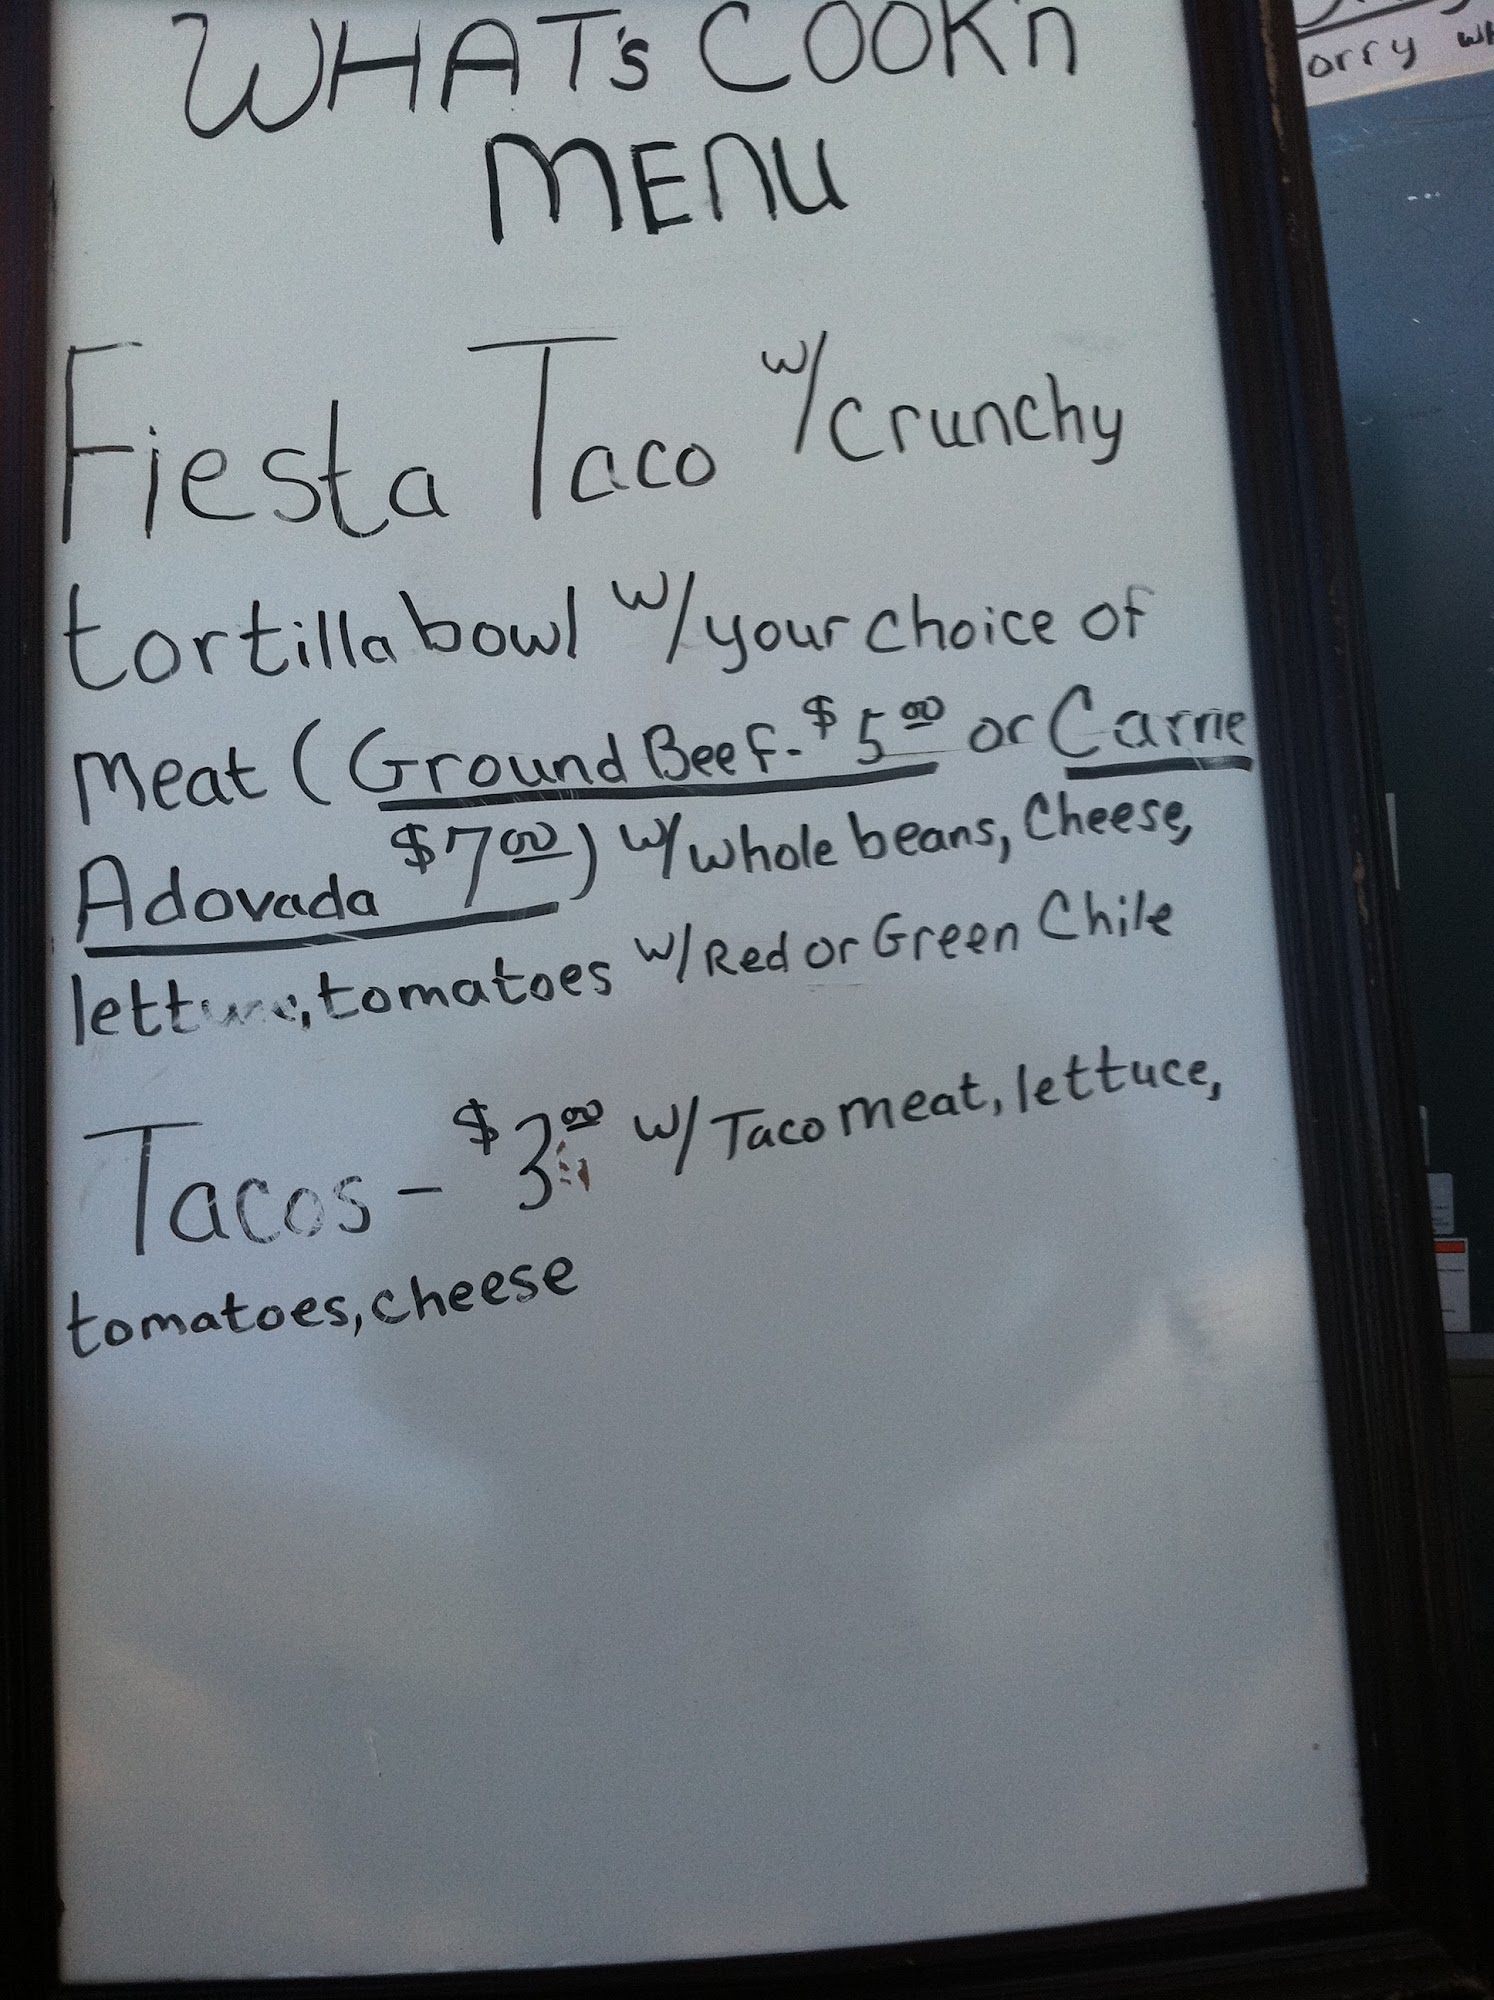 WHAT's COOK'n
MENU
Fiesta Taco w/crunchy
tortilla bowl w/your choice of
meat (Ground Beef-$5.00 or Carne
Adovada $7.00) w/whole beans, Cheese,
lettuce, tomatoes w/Red or Green Chile
Tacos - $3.00 w/Taco meat, lettuce,
tomatoes, cheese
orry